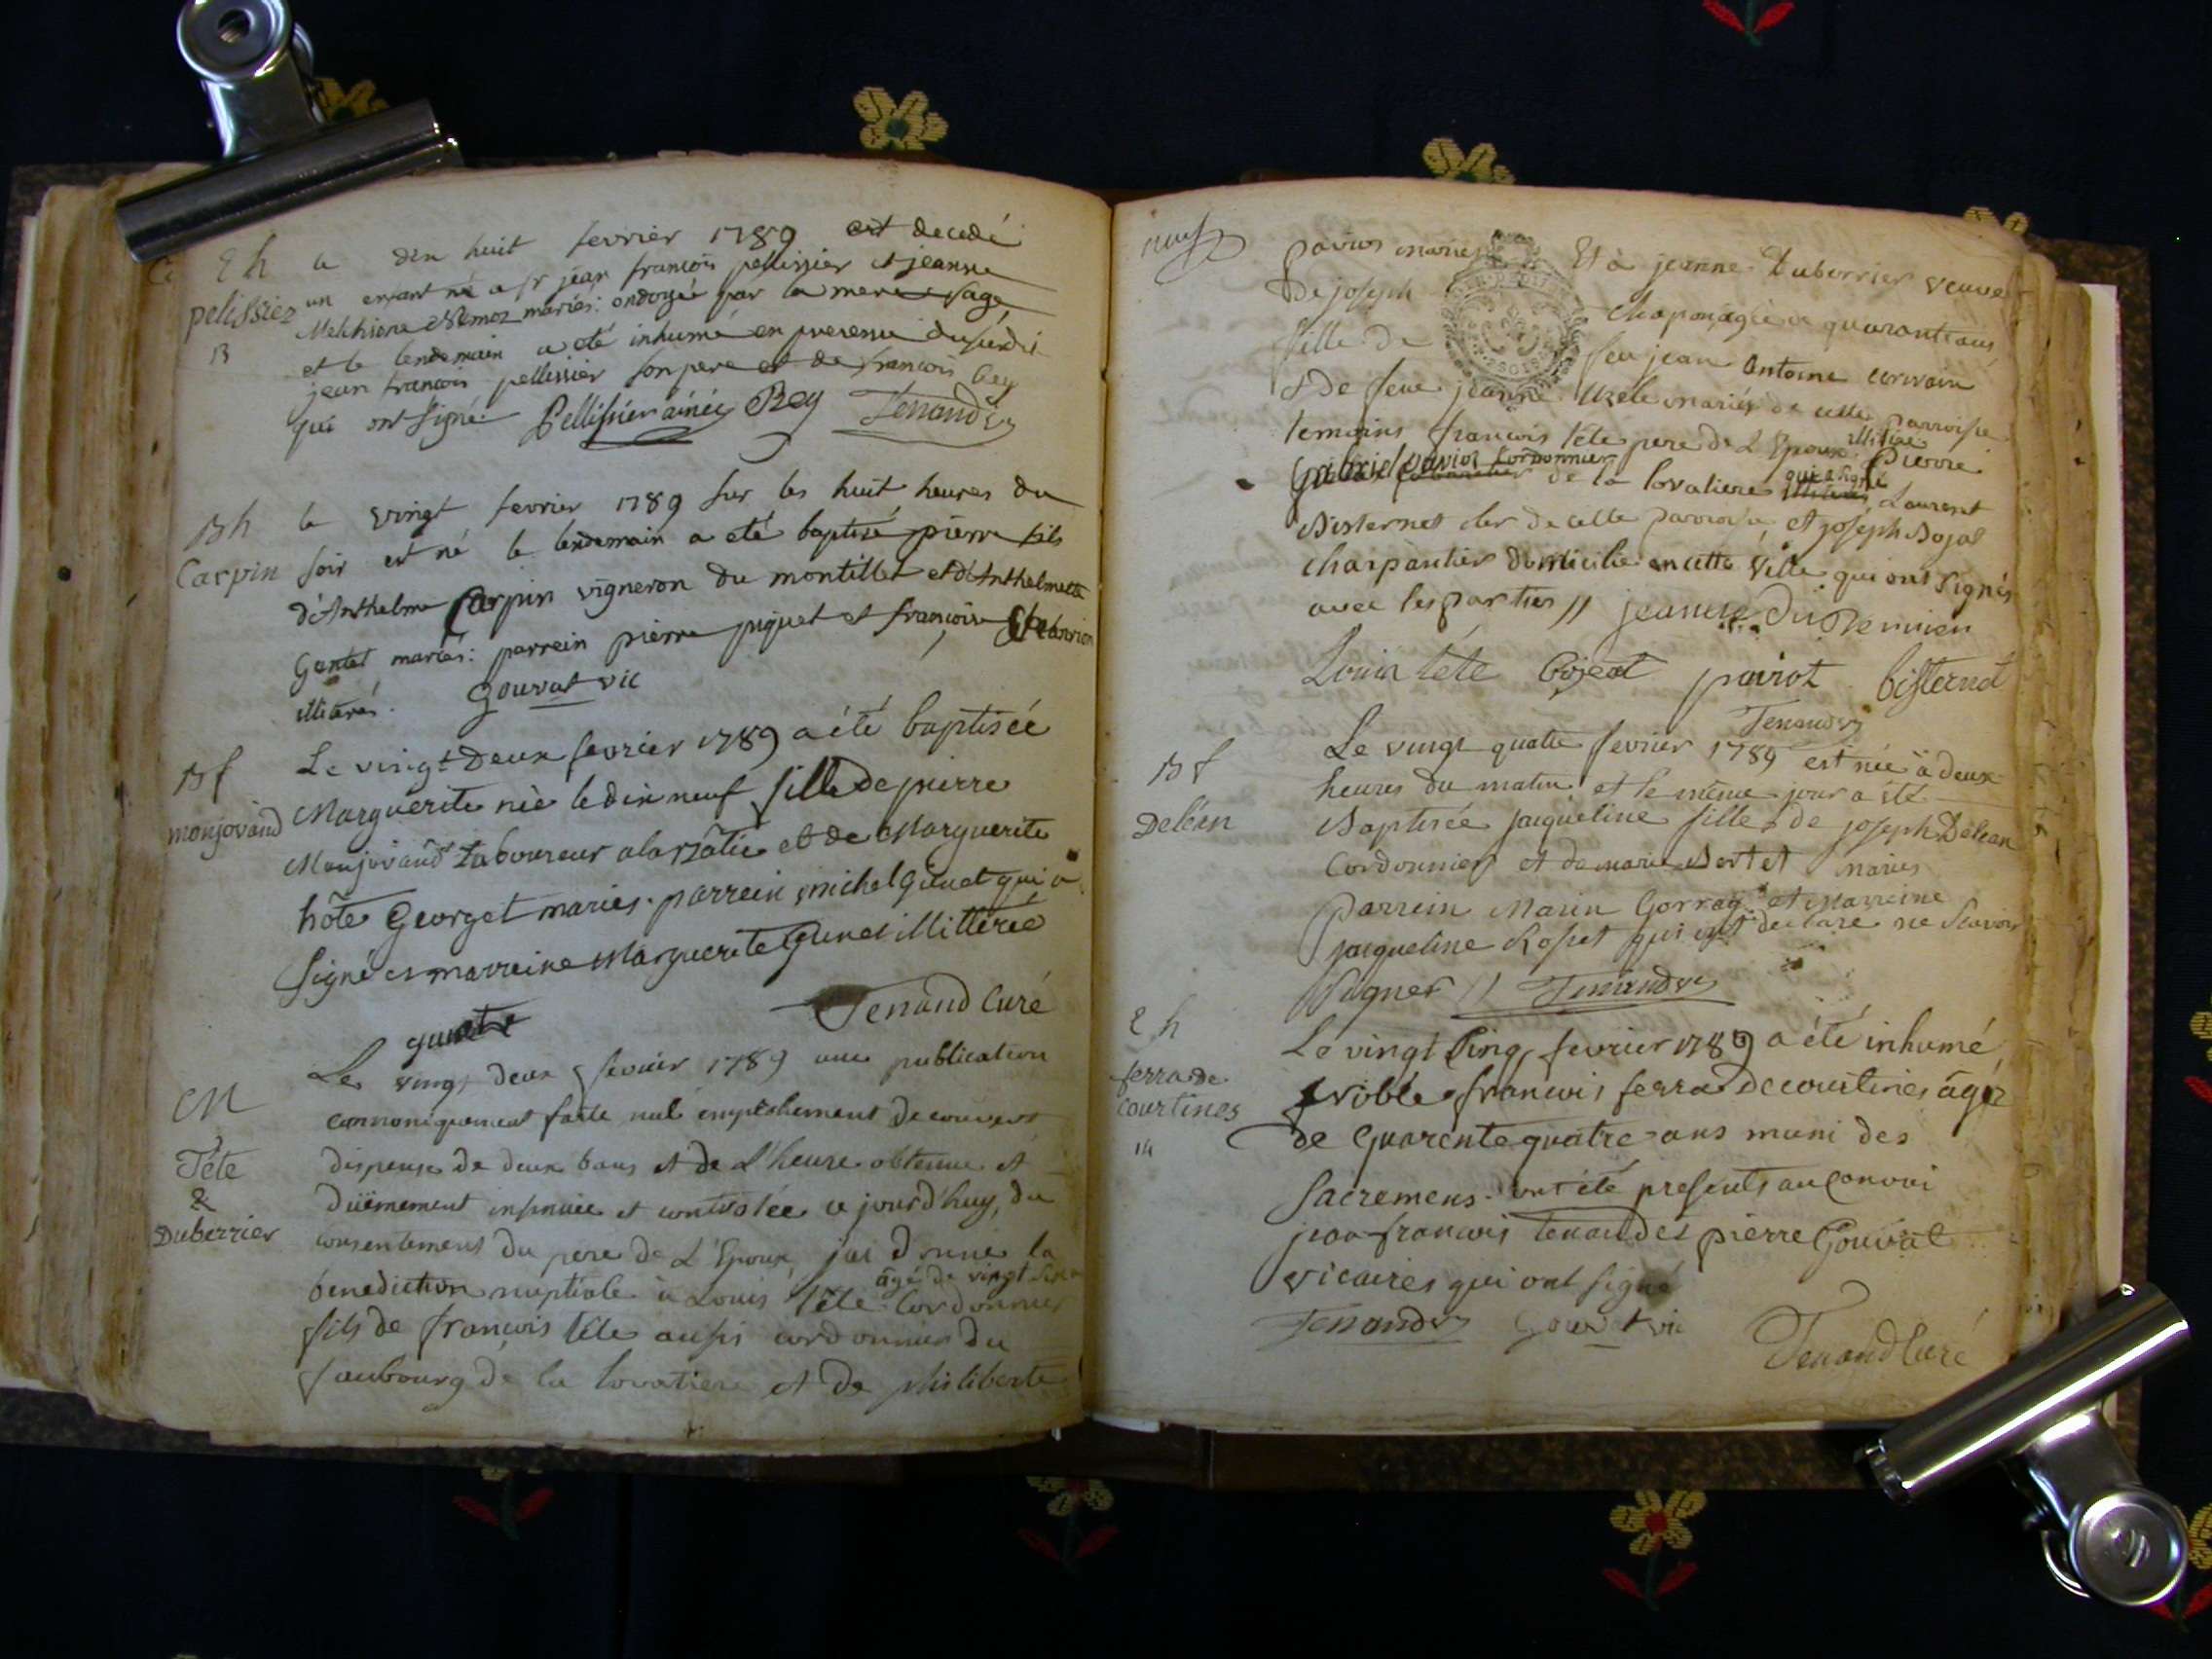 Eh
pelissier
13
le dix huit fevrier 1789 est decedé
un enfant né a sr jean françois pellissier et jeanne
Melchiore Nemoz mariés: ondoyée par la mere sage
et le lendemain a eté inhumé en presence du susdit
jean françois pellissier son pere et de françois Rey
qui ont signé Pellissier ainée Rey Tenand vic
Bh
Carpin
le vingt fevrier 1789 sur les huit heures du
soir est né le lendemain a eté baptisé pierre fils
d'Anthelme Carpin vigneron du montillet et d'Anthelmette
Gentet mariés: parrein pierre piquet et françoise
illiterés. Gouvat vic
Bf
monjovand
Le vingt Deux fevrier 1789 a été baptisée
Marguerite née le dix neuf fille de pierre
Monjovand Laboureur et de Marguerite
hôte Georget mariés. parrein michel Gunet qui a
signé et marreine Marguerite Gunet illitterée
Tenand Curé
gunet
CM
Tête
&
Duberrier
Le vingt deux fevrier 1789 une publication
cannoniquement faite nul empêchement decouvert
dispense de deux bans et de l'heure obtenue et
düement insinuée et controlée ce jourd'huy, du
consentement du pere de L'Epoux, jai donné la
benediction nuptiale à Louis Tête âgé de vingt six Cordonnier
fils de françois Tête aussi cordonnier du
faubourg de la lovatiere et de philiberte
neuf
pavios mariés Et à jeanne Duberrier veuve
De joseph Chapon agée de quarant ans
fille de feu jean Antoine
& De feue jeanne mariés de cette parroisse
temoins françois Tête pere de L'Epoux illitéré Pierre
Gabriel paviot Cordonnier de la lovatiere qui a signé Laurent
Bisternet clerc de cette parroisse, et joseph Bojat
charpantier domicilié en cette ville qui ont signés
avec les parties // jeanne Du
Louis tête Bojeat paviot bisternet
Tenand vic
Bf
Deléan
Le vingt quatre fevrier 1789 est née à deux
heures du matin et le même jour a eté
Baptisée jaqueline fille de joseph Délean
Cordonnier et de marie Bertet mariés
parrein Marin Gorraz et Marreine
jacqueline Rosset qui ont declaré ne sçavoir
signer // Tenand vic
Eh
ferra de
Courtines
14
Le vingt Cinq fevrier 1789 a été inhumé
Noble françois ferra de courtines âgé
de Quarente quatre ans muni des
Sacremens. ont été presents au Convoi
jean françois Tenand et pierre Gouvat
vicaires qui ont signé
Tenand vic Gouvat vic
Tenand Curé